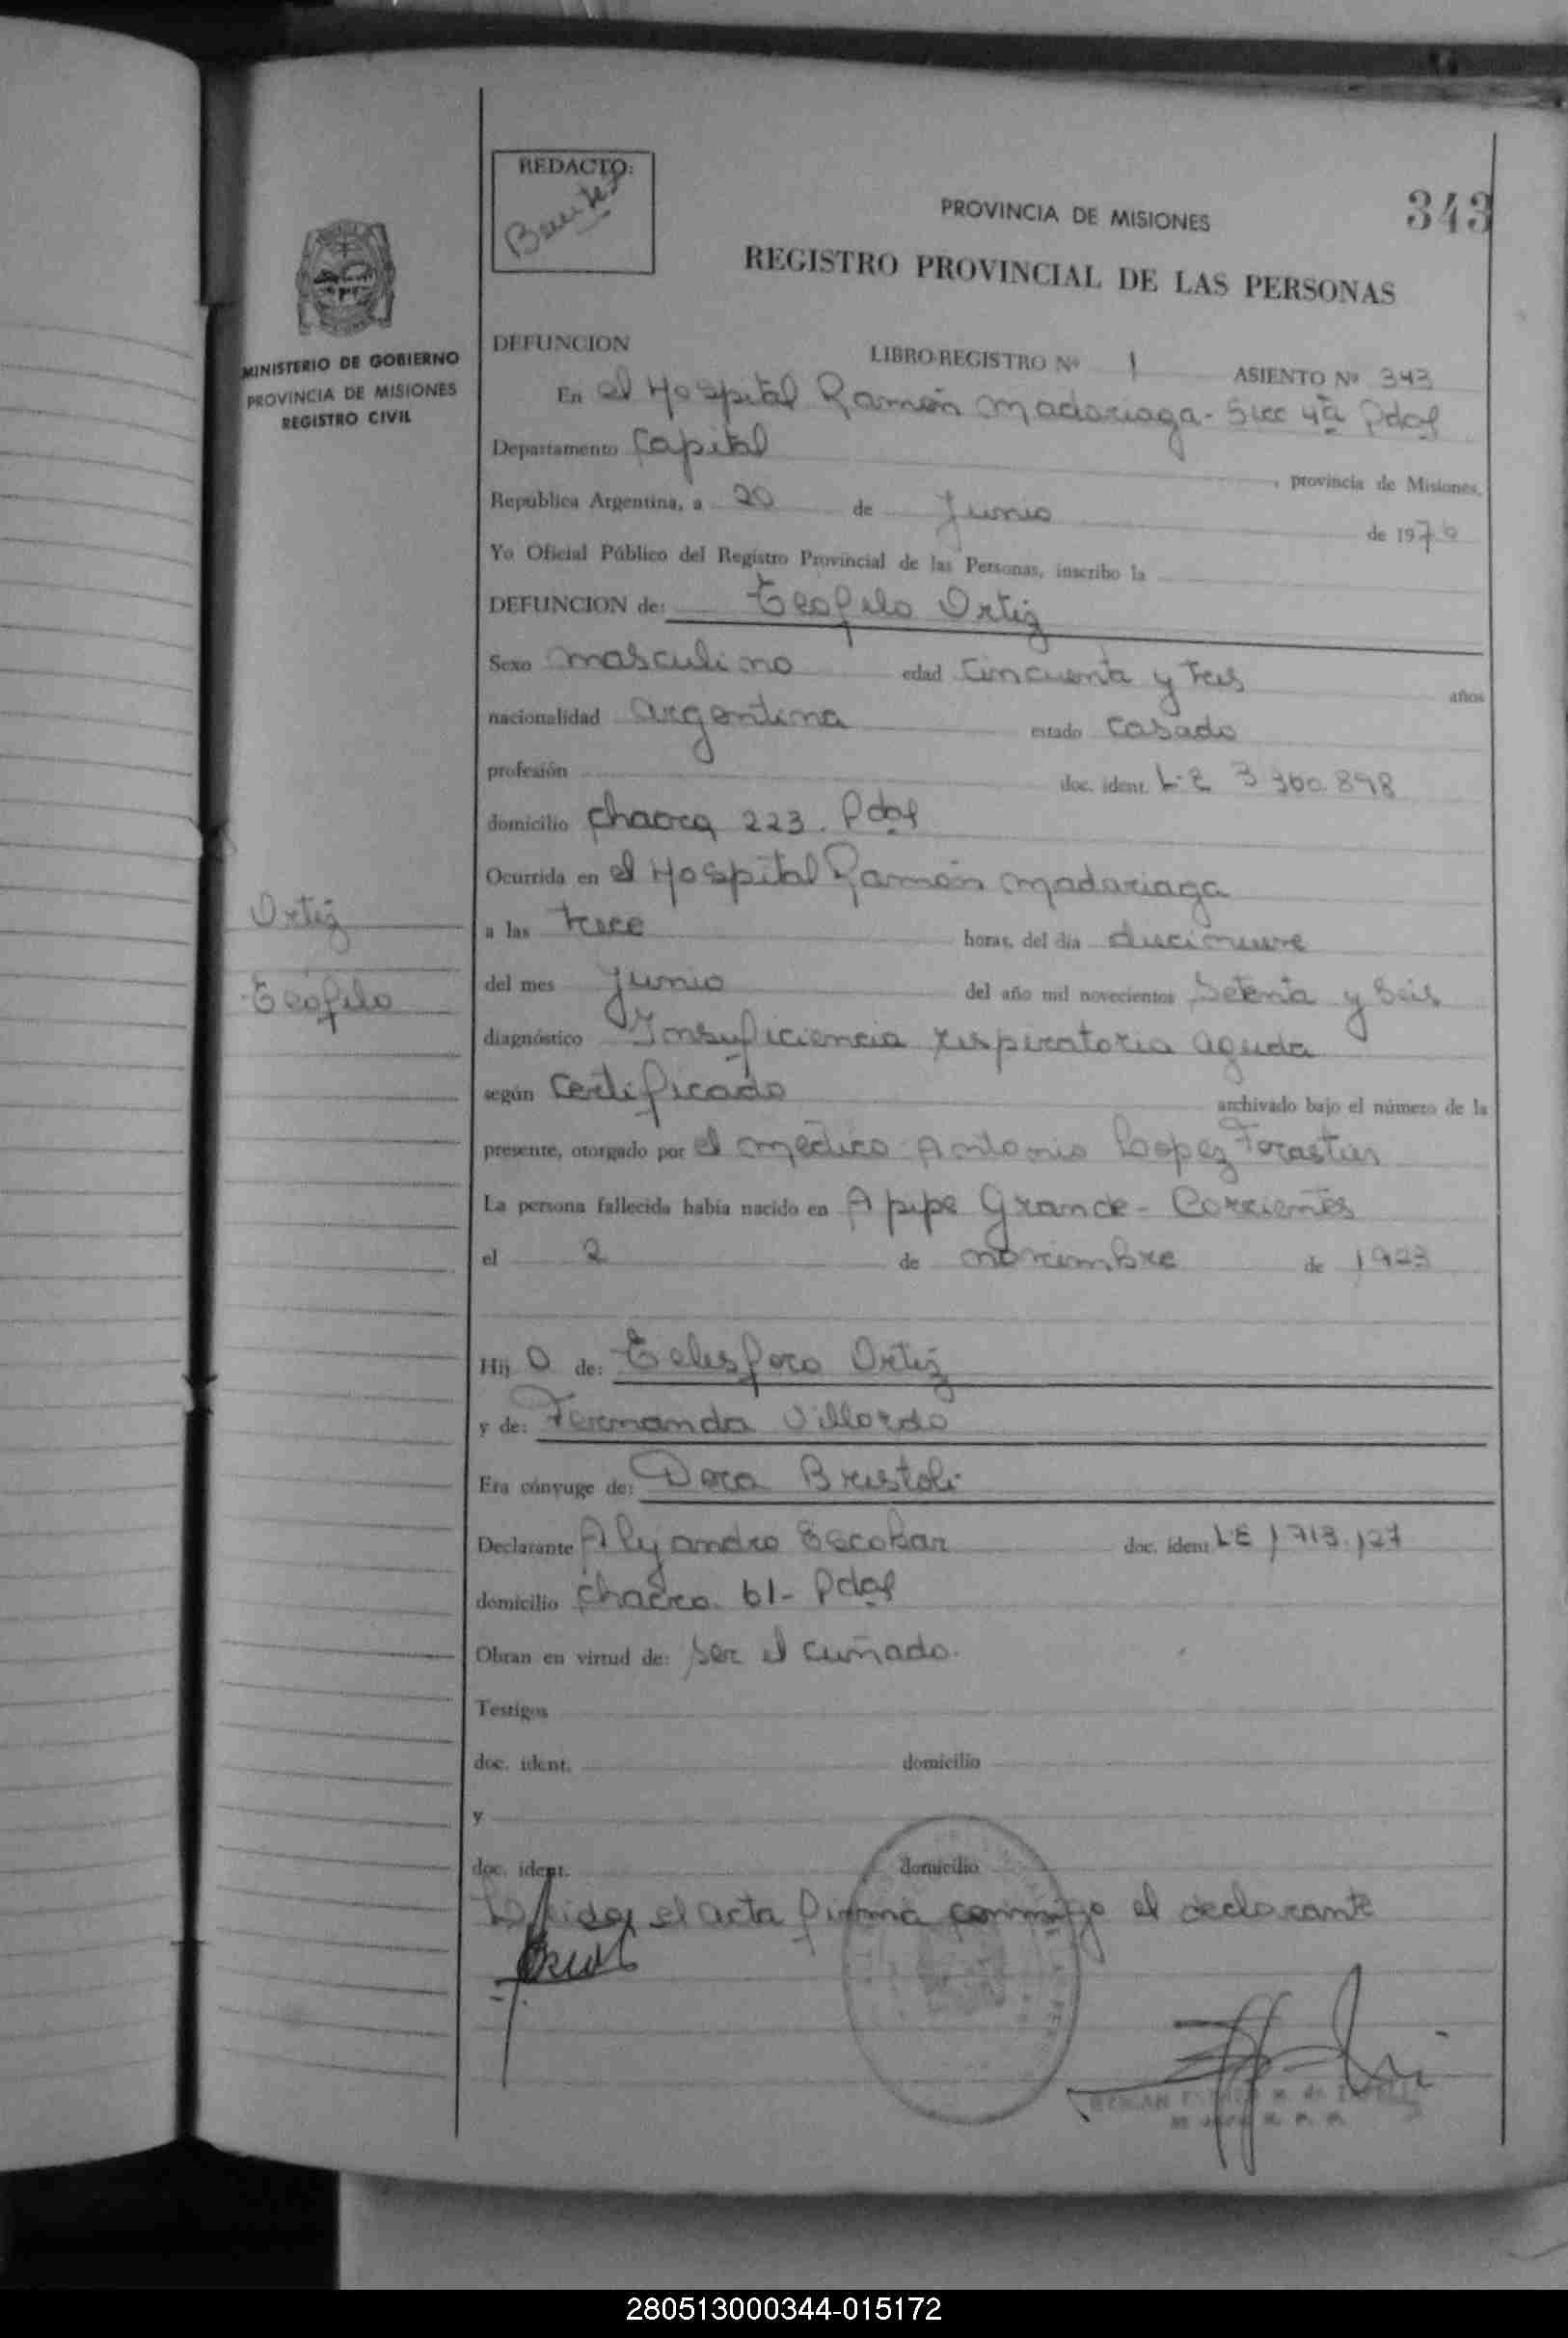 REDACTO:
Benitez
PROVINCIA DE MISIONES
343
REGISTRO PROVINCIAL DE LAS PERSONAS
MINISTERIO DE GOBIERNO
PROVINCIA DE MISIONES
REGISTRO CIVIL
DEFUNCION LIBRO-REGISTRO Nº 1 ASIENTO Nº 343
En el Hospital Ramón Madariaga - Secc 4ª Pdas
Departamento Capital , provincia de Misiones,
República Argentina, a 20 de Junio de 1976
Yo Oficial Público del Registro Provincial de las Personas, inscribo la
DEFUNCION de: Teofilo Ortiz
Sexo masculino edad Cincuenta y tres años
nacionalidad argentina estado Casado
profesión doc. ident. L.E 3 360.898
domicilio chacra 223. Pdas
Ocurrida en el Hospital Ramón Madariaga
Ortiz
a las trece horas, del día diecinueve
Teofilo
del mes Junio del año mil novecientos Setenta y Seis
diagnóstico Insuficiencia respiratoria aguda
según Certificado archivado bajo el número de la
presente, otorgado por el medico Antonio Lopez Forastier
La persona fallecida había nacido en Apipe Grande - Corrientes
el 2 de noviembre de 1923
Hij o de: Telesforo Ortiz
y de: Fernanda Villordo
Era cónyuge de: Dora Bristoli
Declarante Alejandro Escobar doc. ident LE 1 713.127
domicilio chacra 61 - Pdas
Obran en virtud de: Ser el cuñado.
Testigos
doc. ident. domicilio
y
doc. ident. domicilio
Leida el acta firma conmigo el declarante
280513000344-015172